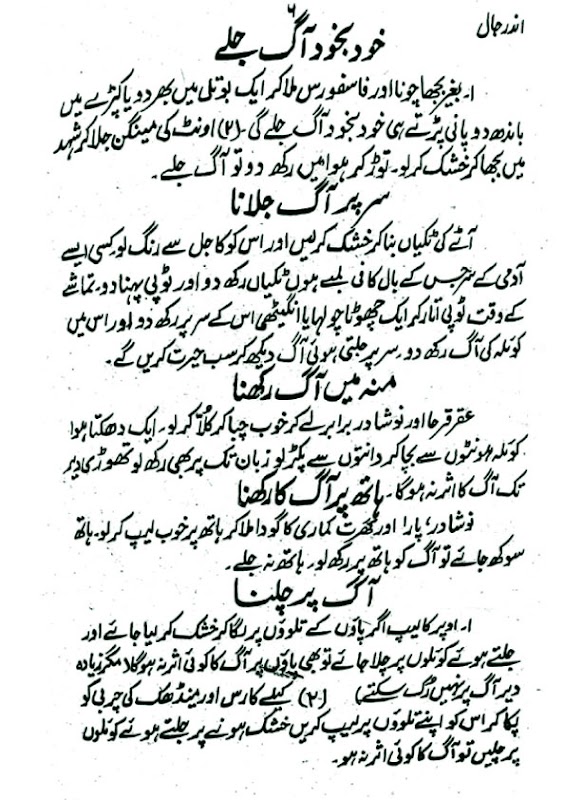 ۶
اندر جال
خود بخود آگ جلے
۱۔ بغیر بجھا چونا اور فاسفورس ملا کر ایک بوتل میں بھر دو یا کپڑے میں
باندھ دو پانی پڑتے ہی خود بخود آگ جلے گی۔ (۲) اونٹ کی مینگن جلا کر شہد
میں بجھا کر خشک کر لو۔ توڑ کر ہوا میں رکھ دو تو آگ جلے۔
سر پر آگ جلانا
آٹے کی ٹکیاں بنا کر خشک کر لیں اور اس کو کاجل سے رنگ لو کسی ایسے
آدمی کے سر جس کے بال کافی لمبے ہوں ٹکیاں رکھ دو اور ٹوپی پہنا دو۔ تماشے
کے وقت ٹوپی اتار کر ایک چھوٹا چولہا یا انگیٹھی اس کے سر پر رکھ دو اور اس میں
کوئلہ کی آگ رکھ دو۔ سر پر جلتی ہوئی آگ دیکھ کر سب حیرت کریں گے۔
منہ میں آگ رکھنا
عقر قرحا اور نوشادر برابر لے کر خوب چبا کر کلا کر لو۔ ایک دھکتا ہوا
کوئلہ ہونٹوں سے بچا کر دانتوں سے پکڑ لو زبان تک پر بھی رکھ لو تھوڑی دیر
تک آگ کا اثر نہ ہوگا۔ ہاتھ پر آگ کا رکھنا
نوشادر، پارا اور گھرت کماری کا گودا ملا کر ہاتھ پر خوب لیپ کر لو۔ ہاتھ
سوکھ جائے تو آگ کو ہاتھ پر رکھ لو۔ ہاتھ نہ جلے۔
آگ پر چلنا
۱۔ اوپر کا لیپ اگر پاؤں کے تلوؤں پر لگا کر خشک کر لیا جائے اور
جلتے ہوئے کوئلوں پر چلا جائے تو بھی پاؤں پر آگ کا کوئی اثر نہ ہوگا (مگر زیادہ
دیر آگ پر نہیں رک سکتے) (۲) کیلے کا رس اور مینڈھک کی چربی کو
پکا کر اس کو اپنے تلوؤں پر لیپ کریں خشک ہونے پر جلتے ہوئے کوئلوں
پر چلیں تو آگ کا کوئی اثر نہ ہو۔